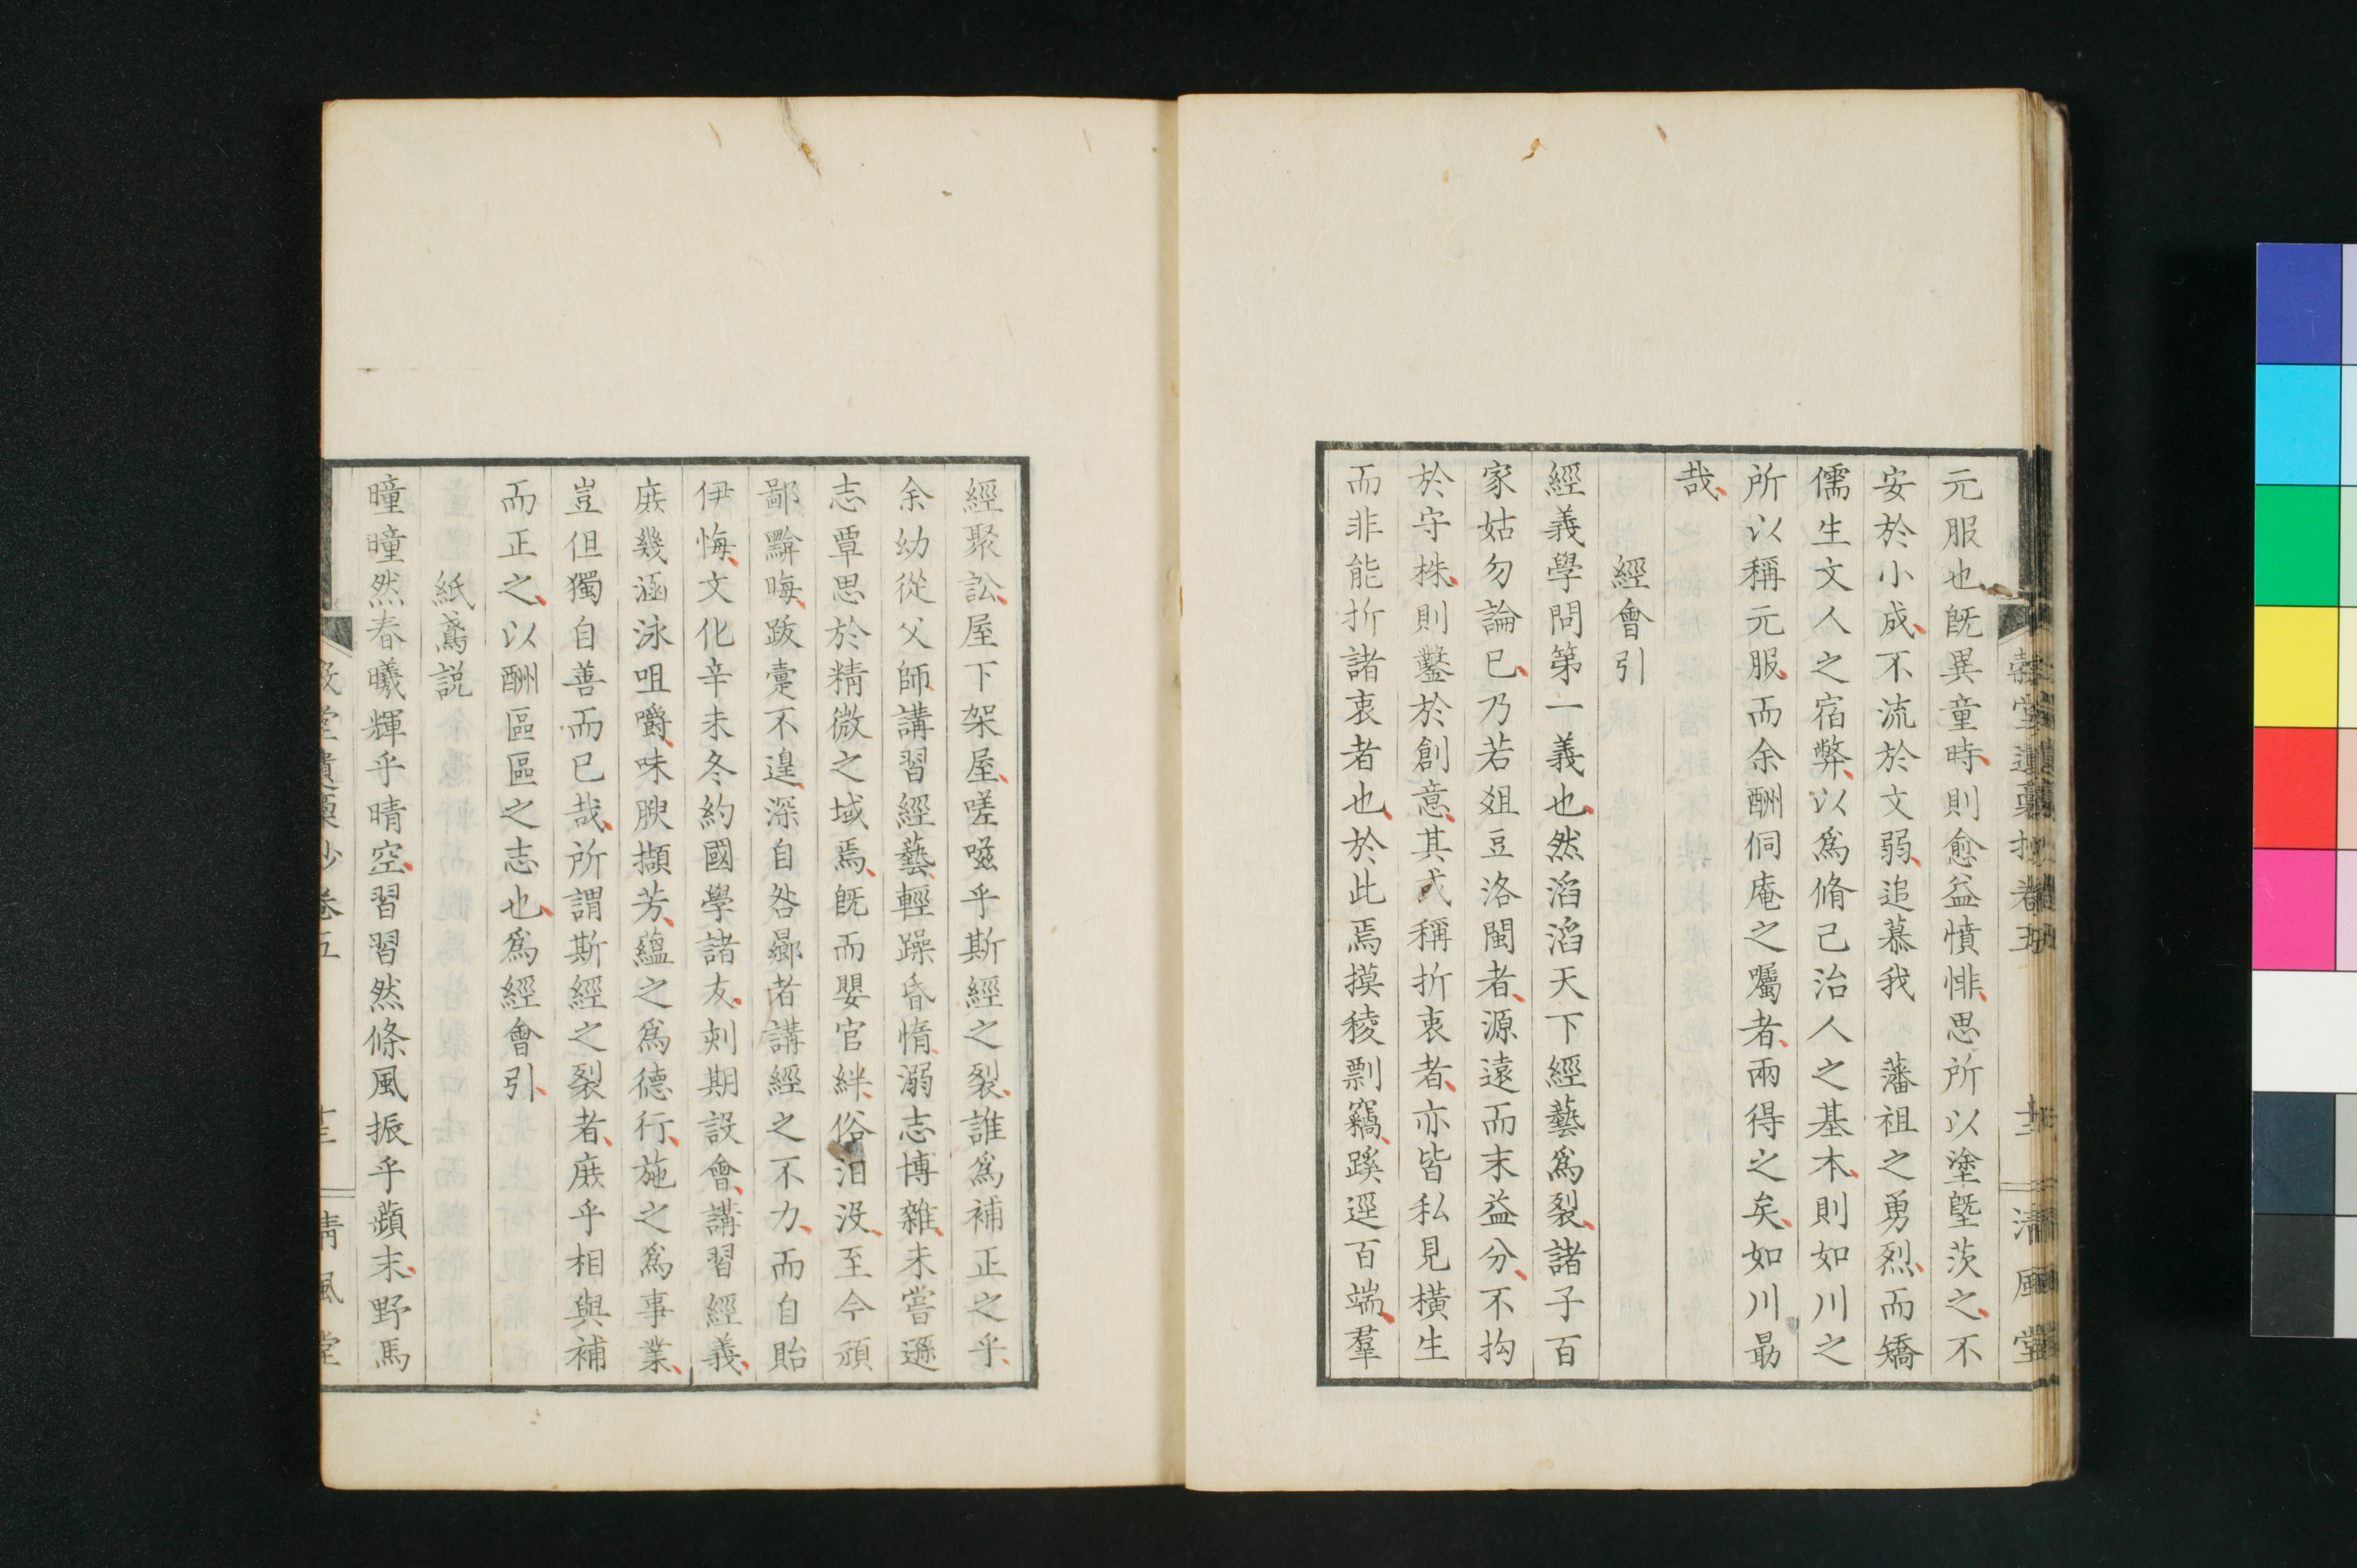 元服也既異童時則愈益憤悱思所以塗塈茨之不
安於小成不流於文弱追慕我　藩祖之勇烈而矯
儒生文人之宿弊以爲脩己治人之基本則如川之
所以稱元服而余酬侗庵之囑者兩得之矣如川勗
哉
經會引
經義學問第一義也然滔滔天下經藝爲裂諸子百
家姑勿論已乃若俎豆洛閩者源遠而末益分不拘
於守株則鑿於創意其或稱折衷者亦皆私見橫生
而非能折諸衷者也於此焉摸稜剽竊蹊逕百端羣
經聚訟屋下架屋嗟嗞乎斯經之裂誰爲補正之乎
余幼從父師講習經藝輕躁昏惰溺志博雜未嘗遜
志覃思於精微之域焉既而嬰官絆俗汨沒至今頑
鄙黯晦跋疐不遑深自咎曏者講經之不力而自貽
伊悔文化辛未冬約國學諸友刺期設會講習經義
庶幾涵泳咀嚼味腴擷芳蘊之爲德行施之爲事業
豈但獨自善而已哉所謂斯經之裂者庶乎相與補
而正之以酬區區之志也爲經會引
紙鳶說
曈曈然春曦輝乎晴空習習然條風振乎蘋末野馬
堂遺稾抄卷五　十三　清風堂